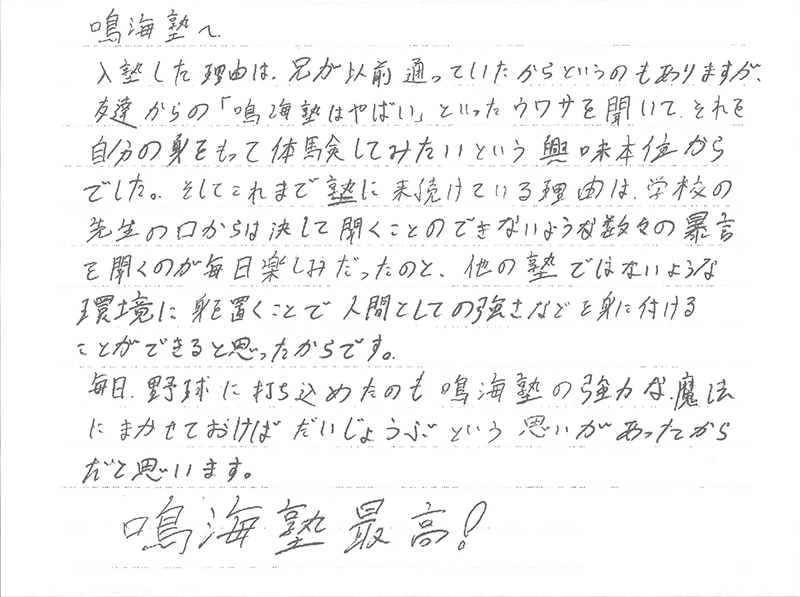 鳴海塾へ
入塾した理由は、兄が以前通っていたからというのもありますが、
友達からの「鳴海塾はやばい」といったウワサを聞いて、それを
自分の身をもって体験してみたいという興味本位から
でした。そしてこれまで塾に来続けている理由は、学校の
先生の口からは決して聞くことのできないような数々の暴言
を聞くのが毎日楽しみだったのと、他の塾ではないような
環境に身を置くことで人間としての強さなどを身に付ける
ことができると思ったからです。
毎日、野球に打ち込めたのも鳴海塾の強力な魔法
にまかせておけばだいじょうぶという思いがあったから
だと思います。
鳴海塾最高!